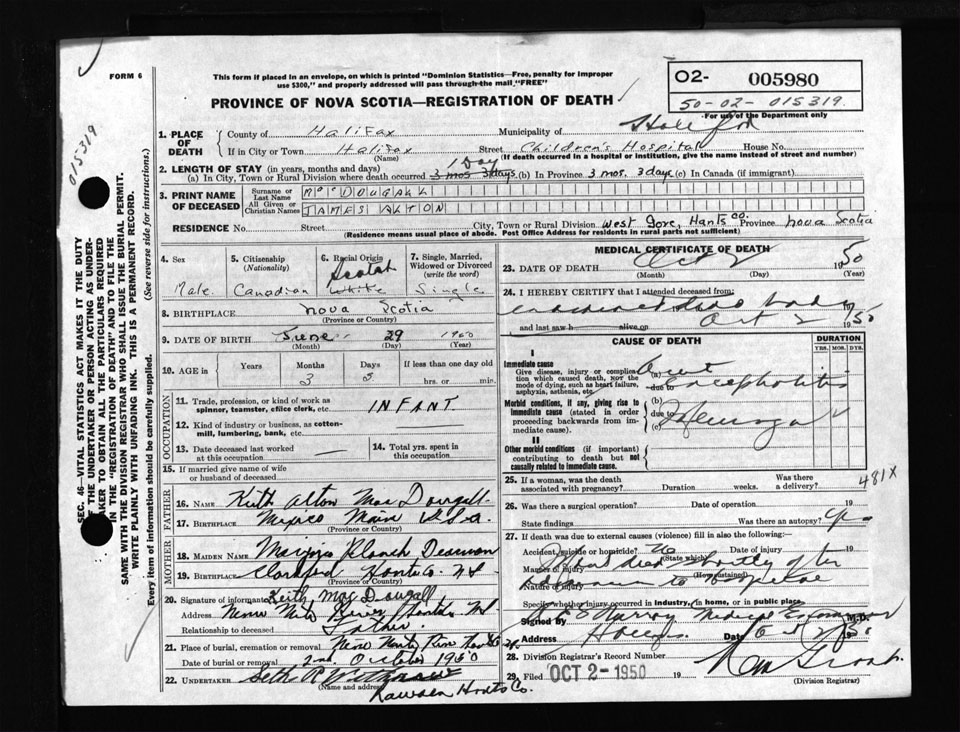 FORM 6
This form if placed in an envelope, on which is printed "Dominion Statistics—Free, penalty for improper
use $300," and properly addressed will pass through the mail "FREE"
O2- 005980
50-02-015319.
For use of the Department only
PROVINCE OF NOVA SCOTIA—REGISTRATION OF DEATH
015319
SEC. 46—VITAL STATISTICS ACT MAKES IT THE DUTY
OF THE UNDERTAKER OR PERSON ACTING AS UNDER-
TAKER TO OBTAIN ALL THE PARTICULARS REQUIRED
IN THE "REGISTRATION OF DEATH" AND TO FILE THE
SAME WITH THE DIVISION REGISTRAR WHO SHALL ISSUE THE BURIAL PERMIT.
WRITE PLAINLY WITH UNFADING INK. THIS IS A PERMANENT RECORD.
Every item of information should be carefully supplied. (See reverse side for instructions.)
1. PLACE OF DEATH
County of Halifax Municipality of
If in City or Town Halifax Street Children's Hospital House No.
(Name) (If death occurred in a hospital or institution, give the name instead of street and number)
2. LENGTH OF STAY (in years, months and days) 1 Day
(a) In City, Town or Rural Division where death occurred 3 mos 3 days (b) In Province 3 mos. 3 days (c) In Canada (if immigrant)
3. PRINT NAME OF DECEASED
Surname or Last Name MacDOUGALL
All Given or Christian Names JAMES ALTON
RESIDENCE No. Street City, Town or Rural Division West Gore, Hants Co. Province Nova Scotia
(Residence means usual place of abode. Post Office Address for residents in rural parts not sufficient)
4. Sex
Male
5. Citizenship (Nationality)
Canadian
6. Racial Origin
Scotch
White
7. Single, Married, Widowed or Divorced (write the word)
Single
8. BIRTHPLACE Nova Scotia
(Province or Country)
9. DATE OF BIRTH June 29 1950
(Month) (Day) (Year)
10. AGE in Years Months Days If less than one day
3 hrs. or min.
OCCUPATION
11. Trade, profession, or kind of work as spinner, teamster, office clerk, etc. INFANT
12. Kind of industry or business, as cotton-mill, lumbering, bank, etc.
13. Date deceased last worked at this occupation
14. Total yrs. spent in this occupation
15. If married give name of wife or husband of deceased
FATHER
16. NAME Keith Alton MacDougall
17. BIRTHPLACE Mexico Maine U.S.A.
(Province or Country)
MOTHER
18. MAIDEN NAME
19. BIRTHPLACE Hants Co. N.S.
(Province or Country)
20. Signature of informant Keith MacDougall
Address Hants N.S.
Relationship to deceased Father
21. Place of burial, cremation or removal
Date of burial or removal 2nd October 1950
22. UNDERTAKER Seth
(Name and address)
Rawdon Hants Co.
MEDICAL CERTIFICATE OF DEATH
23. DATE OF DEATH Oct 2 1950
(Month) (Day) (Year)
24. I HEREBY CERTIFY that I attended deceased from:
body
and last saw h alive on Oct 2 1950
CAUSE OF DEATH
DURATION
YRS. MOS. DYS.
I
Immediate cause
Give disease, injury or complication which caused death, NOT the mode of dying, such as heart failure, asphyxia, asthenia, etc.
(a) encephalitis
due to
Morbid conditions, if any, giving rise to immediate cause (stated in order proceeding backwards from immediate cause).
(b)
due to
(c)
II
Other morbid conditions (if important) contributing to death but not causally related to immediate cause.
481X
25. If a woman, was the death associated with pregnancy? Duration weeks. Was there a delivery?
26. Was there a surgical operation? Date of operation 19
State findings Was there an autopsy?
27. If death was due to external causes (violence) fill in also the following:
Accident, suicide or homicide? No Date of injury 19
(State which)
Manner of injury died shortly after
(How sustained)
Nature of injury admission to hospital
Specify whether injury occurred in industry, in home, or in public place.
Signed by Medical Examiner M.D.
Address Halifax Date Oct 2 1950
28. Division Registrar's Record Number
29. Filed OCT 2-1950 19
(Division Registrar)